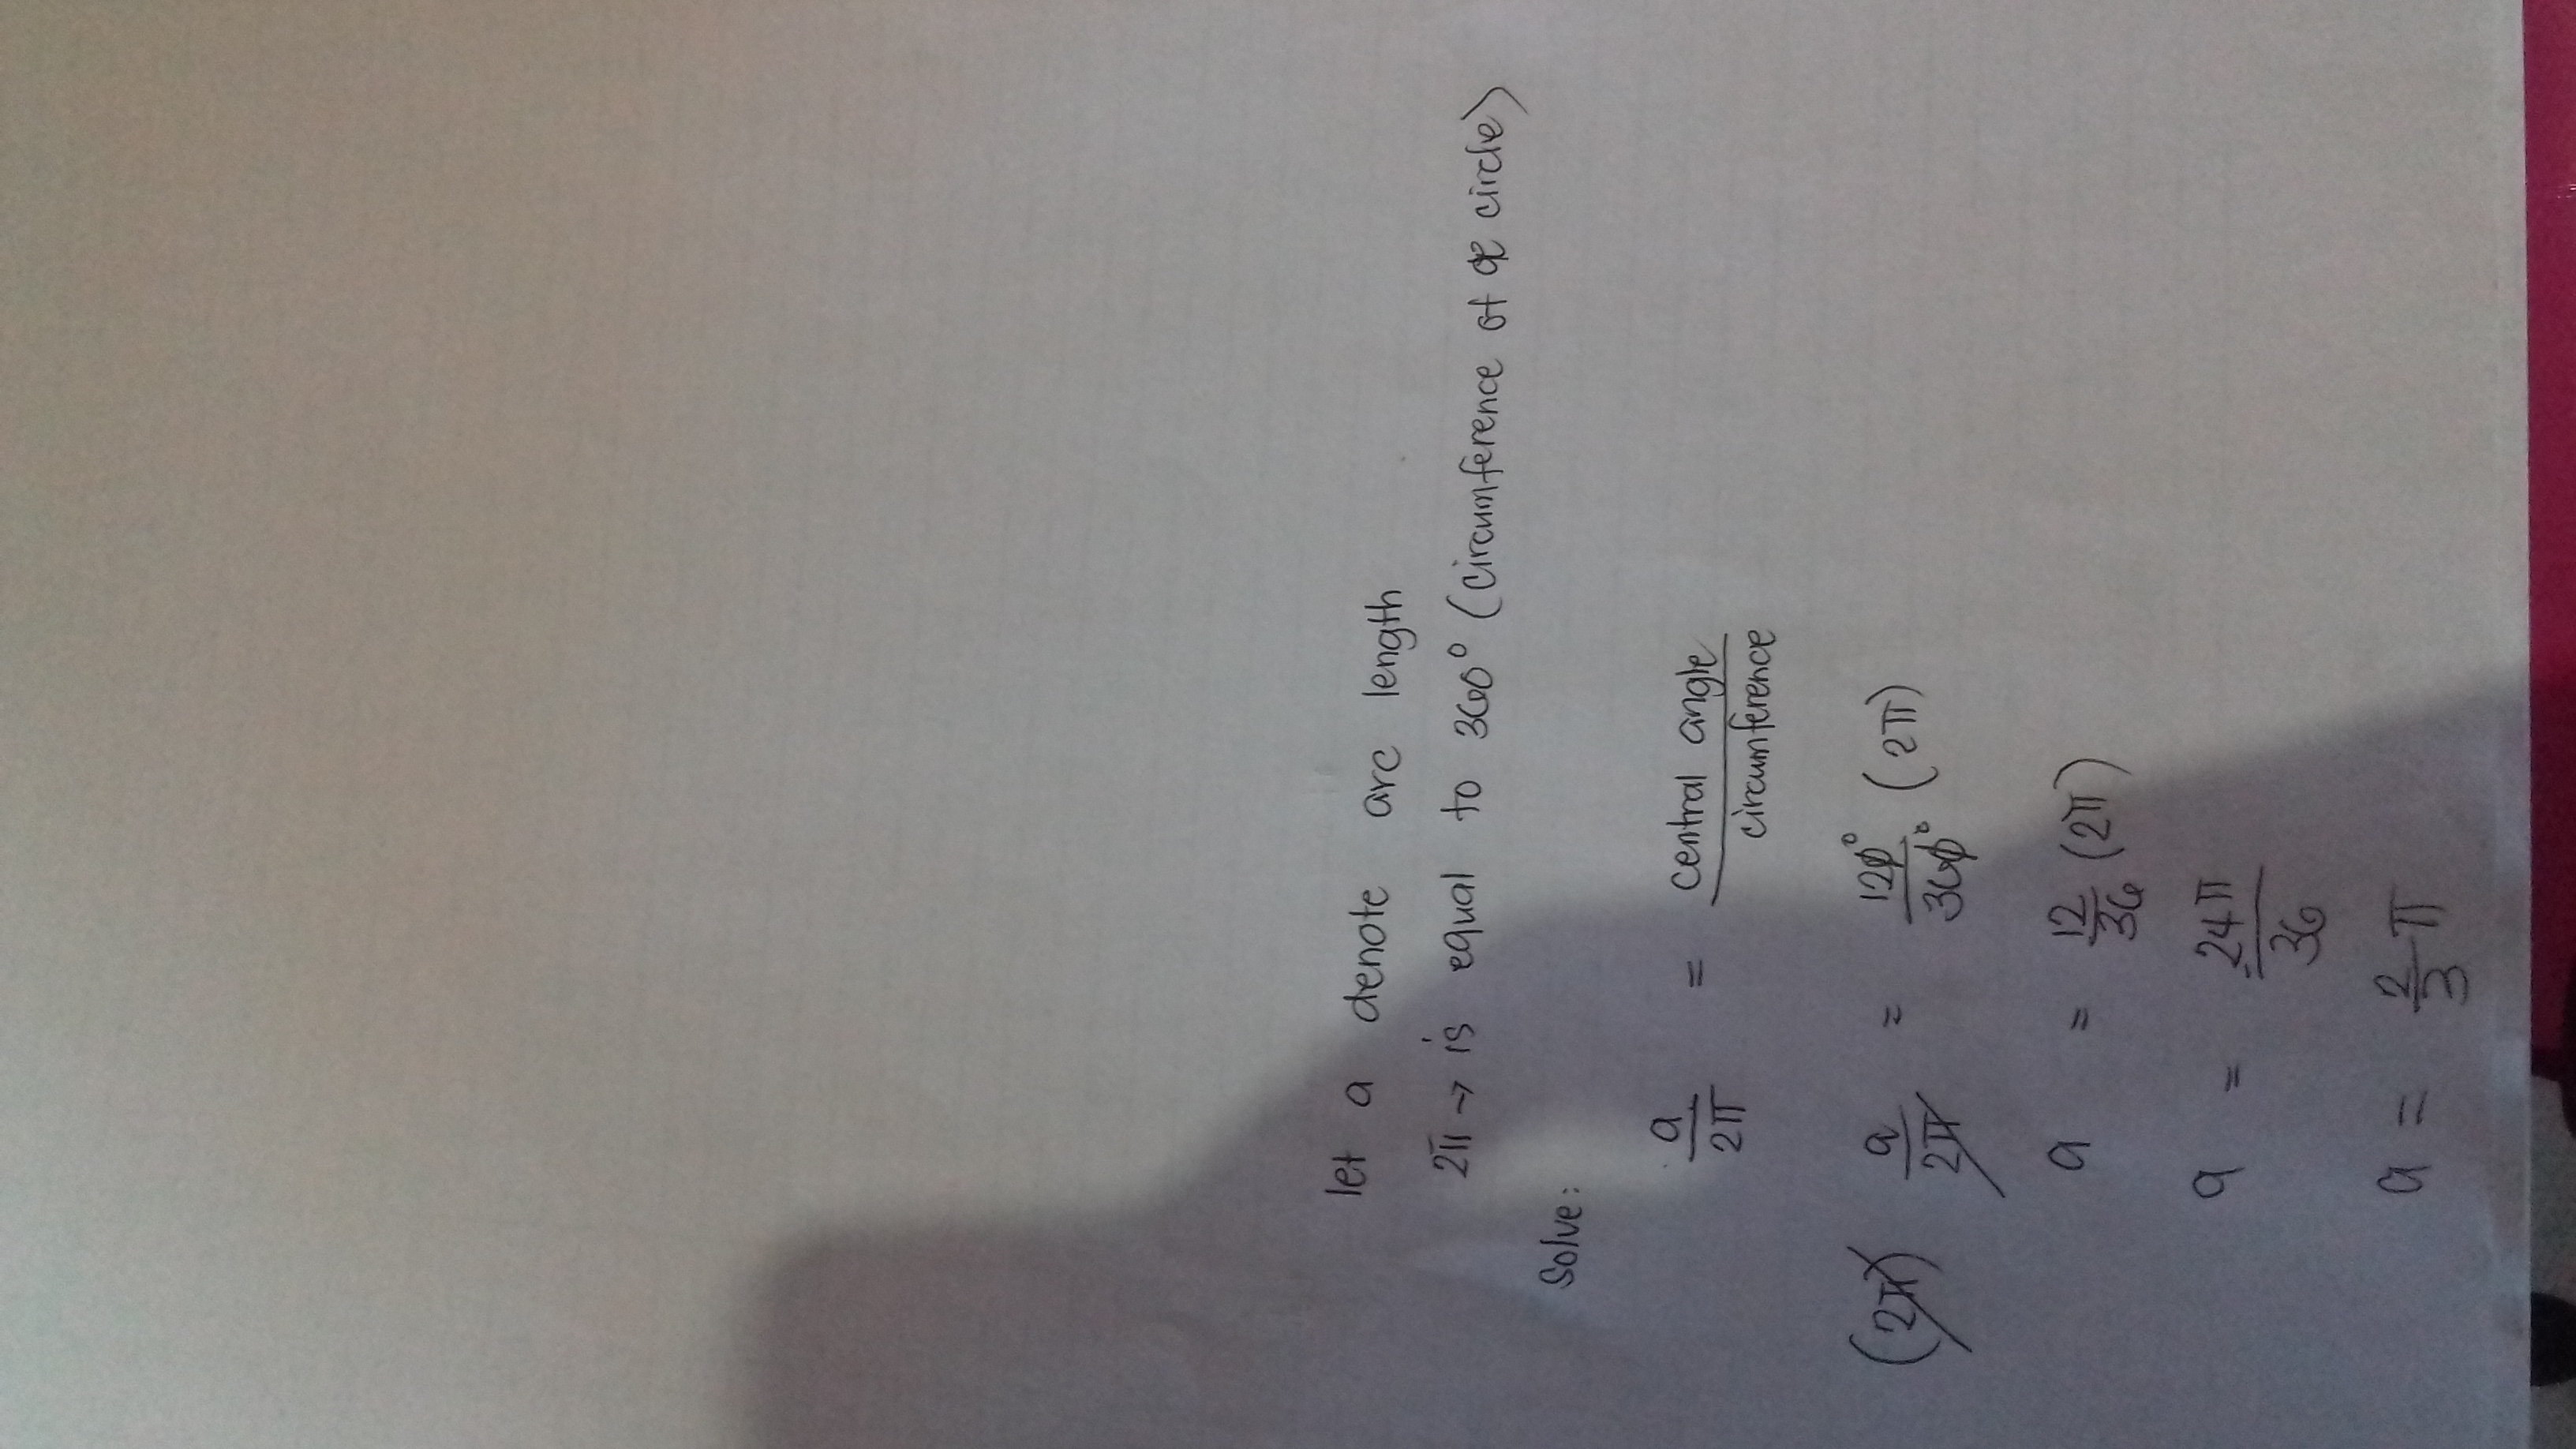 let a denote arc length
2π → is equal to 360° (circumference of a circle)
Solve:
a/2π = central angle/circumference
(2π) a/2π = 120°/360° (2π)
a = 12/36 (2π)
a = 24π/36
a = 2/3 π